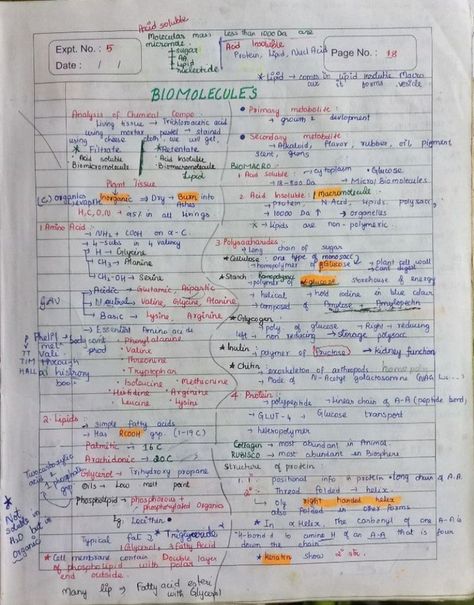 Acid soluble
Molecular mass less than 1000 Da are
micromole.
Expt. No. : 5
Date : / /
sugar
AA
Lipid
nucleotide
Acid Insoluble
Protein, Lipid, Nucl Acid
Page No. : 18
BIOMOLECULES
Analysis of Chemical Compo :
Living tissue → Trichloroacetic acid
using mortar pestel → stained
using cheese cloth we will get,
Filtrate * Retentate
Acid soluble • Acid Insoluble
Biomicromolecule Biomacromolecule
Lipid
Plant Tissue
(C) organics Inorganic → Dry → Burn into
Ashes
H, C, O, N → all in living
1. Amino Acid :-
→ NH₂ + COOH on α-C.
→ 4-subs in 4 valency
H → Glycine
CH₃ → Alanine
CH₂-OH → Serine
Acidic → Glutamic, Aspartic
GAV Neutral → Valine, Glycine, Alanine
Basic → Lysine, Arginine
→ Essential Amino acids
Phenylalanine
Valine
Threonine
Tryptophan
Isoleucine Methionine
Histidine Arginine
Leucine Lysine
2. Lipids
→ simple fatty acids
→ Has RCOOH grp. (1-19 C)
Palmitic → 16 C
Arachidonic → 20 C
Glycerol → Trihydroxy propane
Oils → Low melt point
Phospholipid → phosphorous +
phosphorylated Organics
Eg. Lecithin
* Not
soluble in
H₂O but in
Organic
Typical fat * Triglyceride
1 Glycerol, 3 Fatty Acid
* Cell membrane contain Double layer
of phospholipid with polar
end outside.
Many lip → Fatty acid ester
with Glycerol
• Primary metabolite :
→ growth & development
• Secondary metabolite
→ Alkaloid, flavor, rubber, oil, pigment
scent, gums
BIOMACRO
1. Acid soluble : → cytoplasm • Glucose
→ 18-800 Da → Micro/Biomolecules
2. Acid Insoluble : Macromolecule
→ protein, N.Acid, Lipids, polysacc,
→ 10000 Da ↑ → organelles
× Lipids are non-polymeric
3. Polysaccharides
→ Long chain of sugar
* Cellulose : one type of monosacc
→ homopolymer of Glucose → plant cell wall
* Starch
→ polymer of glucose storehouse of energy
→ helical → hold iodine in blue colour
→ composed of Amylose + Amylopectin
* Glycogen
→ poly of glucose → Right → reducing
left → non reducing → storage polysacc
* Inulin
→ polymer of Fructose → kidney function
* Chitin
→ exoskeleton of arthropods
→ Made of N-Acetyl galactosamine
4. Protein :
→ polypeptide → Linear chain of A-A (peptide bond)
→ GLUT-4 → Glucose transport
→ heteropolymer
Collagen → most abundant in Animal
RUBISCO → most abundant in Biosphere
Structure of protein
1° : positional info in protein • long chain of A.A.
2° : Thread folded → helix
→ Only right handed helix
also folded in other forms
* In α Helix, the carbonyl of one A-A is
H-bond to amine H of an A-A that is four
down the chain
* keratin show 2° str.